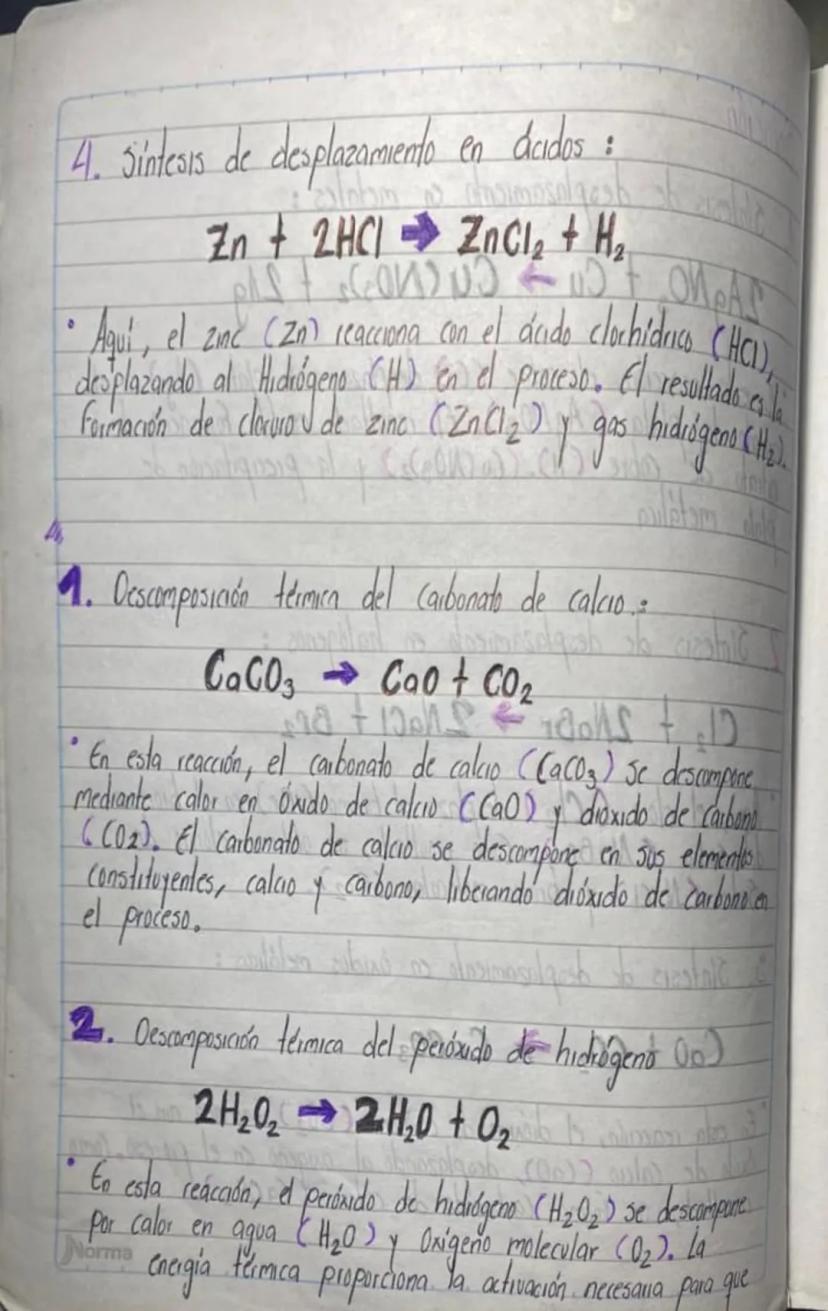 4. Síntesis de desplazamiento en ácidos :
Zn + 2HCl → ZnCl₂ + H₂
• Aquí, el zinc (Zn) reacciona con el ácido clorhídrico (HCl),
desplazando al Hidrógeno (H) en el proceso. El resultado es la
formación de cloruro de zinc (ZnCl₂) y gas hidrógeno (H₂).
1. Descomposición térmica del Carbonato de calcio :
CaCO₃ → CaO + CO₂
• En esta reacción, el carbonato de calcio (CaCO₃) se descompone
mediante calor en óxido de calcio (CaO) y dióxido de carbono
(CO₂). El carbonato de calcio se descompone en sus elementos
constituyentes, calcio y carbono, liberando dióxido de carbono en
el proceso.
2. Descomposición térmica del peróxido de hidrógeno
2H₂O₂ → 2H₂O + O₂
• En esta reacción, el peróxido de hidrógeno (H₂O₂) se descompone
por calor en agua (H₂O) y Oxígeno molecular (O₂). La
Norma
energía térmica proporciona la activación necesaria para que